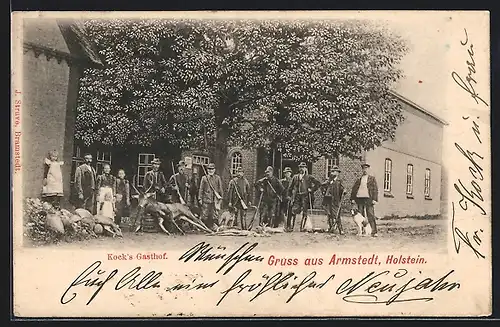 J. Struve, Bramstedt.
Kock's Gasthof.
Gruss aus Armstedt, Holstein.
Wünschen
Euch Allen ein fröhliches Neujahr
Fr. Kock u Frau